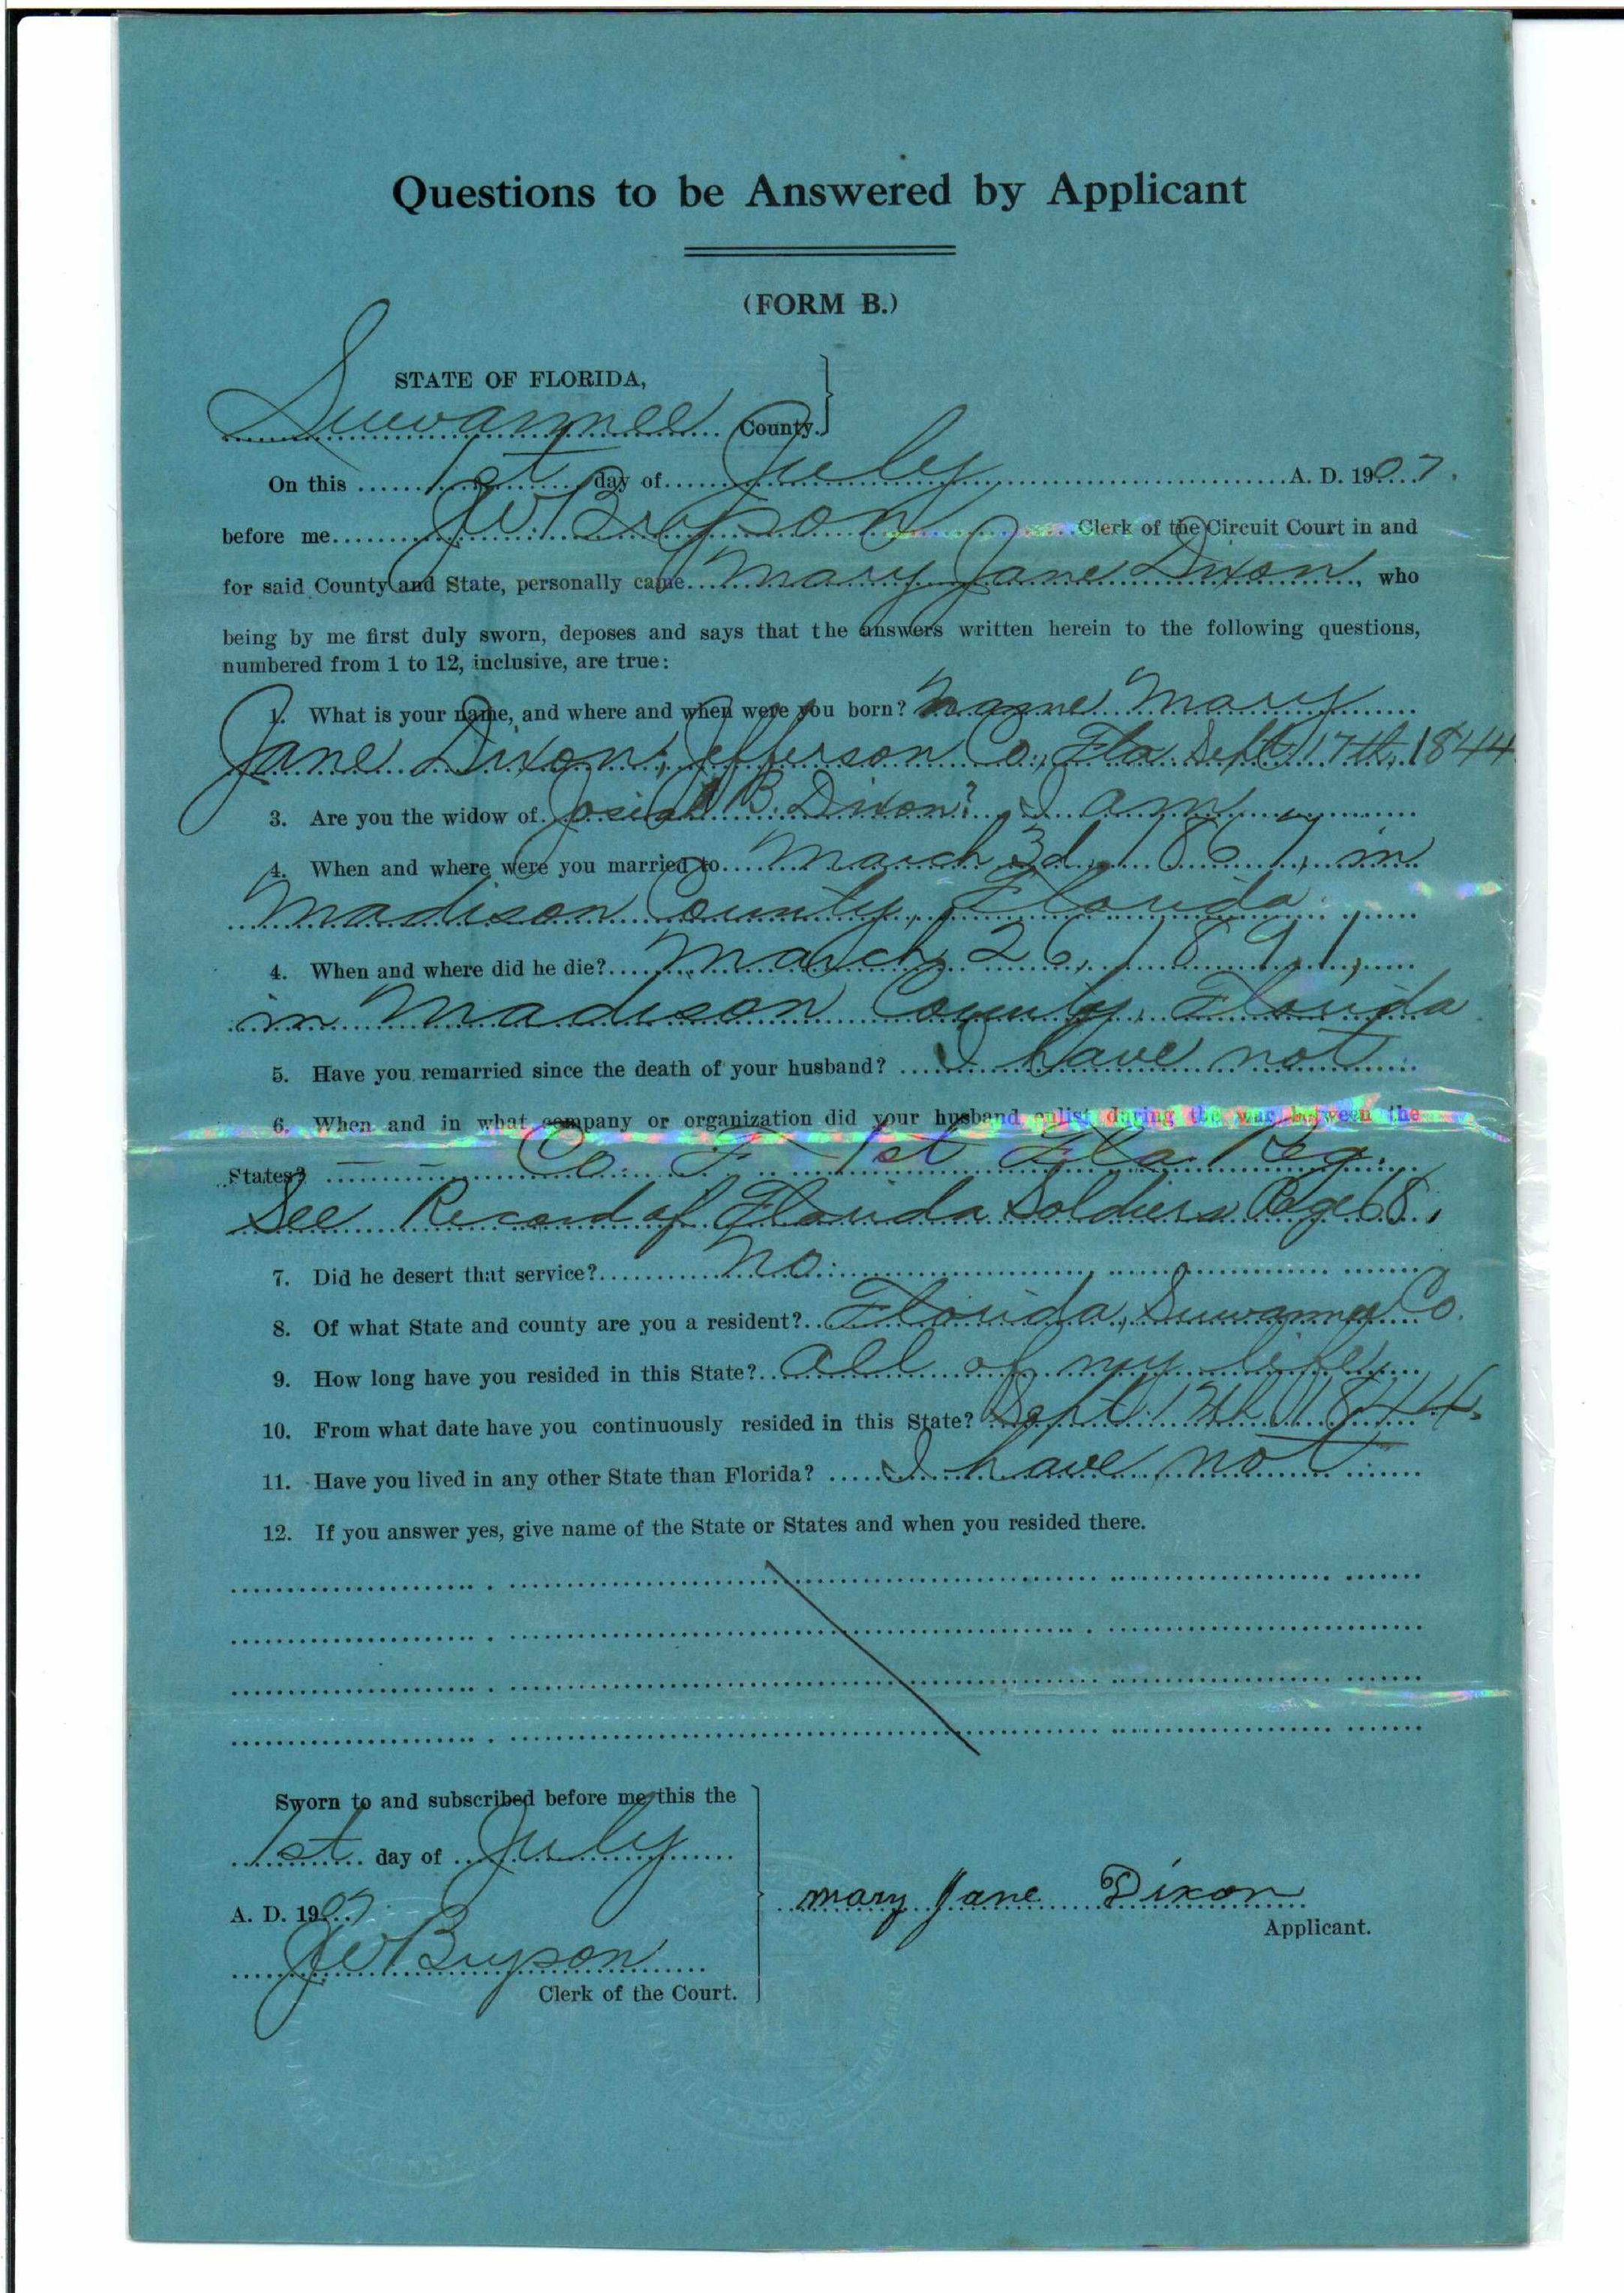 Questions to be Answered by Applicant
(FORM B.)
STATE OF FLORIDA,
Suwannee County.
On this 1st day of July A. D. 1907.
before me J W Bryson Clerk of the Circuit Court in and
for said County and State, personally came Mary Jane Dixon, who
being by me first duly sworn, deposes and says that the answers written herein to the following questions,
numbered from 1 to 12, inclusive, are true:
1. What is your name, and where and when were you born? Name Mary
Jane Dixon, Jefferson Co., Fla. Sept 17th, 1844
3. Are you the widow of Josiah B. Dixon? I am
4. When and where were you married to March 3d, 1867, in
Madison County, Florida.
4. When and where did he die? March 26, 1891,
in Madison County, Florida
5. Have you remarried since the death of your husband? I have not
6. When and in what company or organization did your husband enlist during the war between the
States? — — — Co. F 1st Fla. Reg.
See Record of Florida Soldiers Page 68.
7. Did he desert that service? No.
8. Of what State and county are you a resident? Florida, Suwannee Co.
9. How long have you resided in this State? All of my life.
10. From what date have you continuously resided in this State? Sept 17th 1844.
11. Have you lived in any other State than Florida? I have not
12. If you answer yes, give name of the State or States and when you resided there.
Sworn to and subscribed before me this the
1st day of July
A. D. 1907
J W Bryson
Clerk of the Court.
Mary Jane Dixon
Applicant.